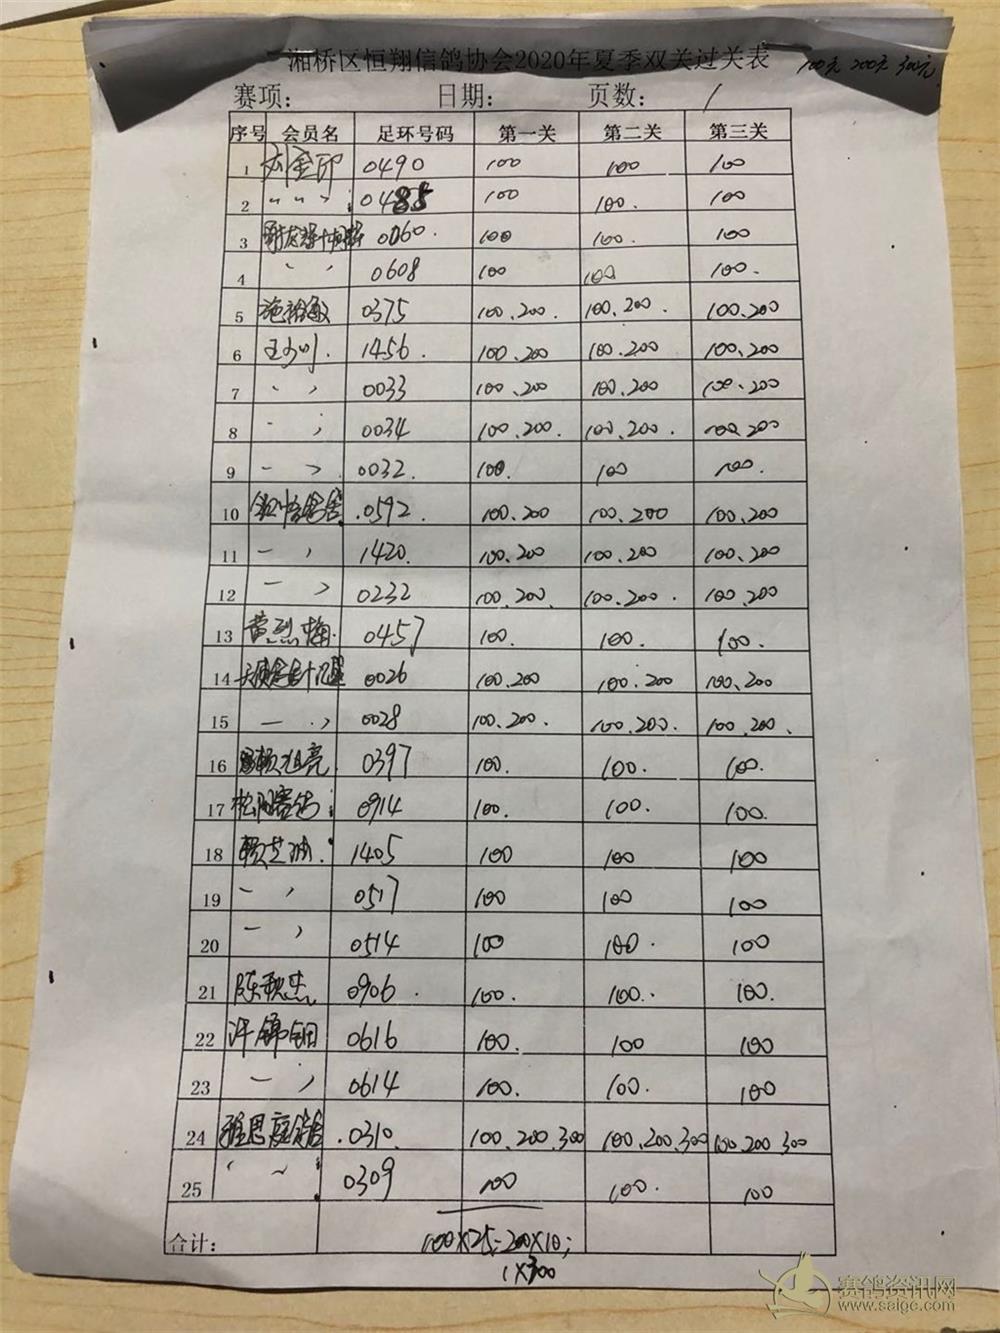 湘桥区恒翔信鸽协会2020年夏季双关过关表 100元 200元 300元
赛项: 日期: 页数: 1
序号 会员名 足环号码 第一关 第二关 第三关
1 0490 100 100 100
2 〃 〃 〃 0485 100 100. 100
3 0060. 100 100. 100
4 〃 〃 0608 100 100 100.
5 0375 100.200. 100.200. 100.200
6 1456. 100.200 100.200 100.200
7 〃 〃 0033 100.200 100.200 100.200
8 〃 〃 0034 100.200. 100.200. 100.200
9 〃 〃 0032. 100. 100 100.
10 .0592. 100.200 100.200 100.200
11 〃 〃 1420. 100.200 100.200 100.200
12 〃 〃 0232 100.200. 100.200. 100.200
13 黄烈梅. 0457 100. 100. 100.
14 0026 100.200 100.200 100.200
15 〃 〃 0028 100.200. 100.200. 100.200.
16 赖旭亮 0397 100. 100. 100.
17 松阳赛鸽 0914 100. 100. 100.
18 赖芝 1405 100 100 100
19 〃 〃 0517 100 100 100
20 〃 〃 0514 100 100. 100
21 陈秋杰 0906. 100. 100.. 100.
22 许锦钿 0616 100. 100 100
23 〃 〃 0614 100. 100. 100
24 雅思庭鸽舍 .0310. 100.200.300 100.200.300 100.200.300
25 〃 〃 0309 100 100. 100
合计: 100×25; 200×10;
1×300
赛鸽资讯网
www.saige.com